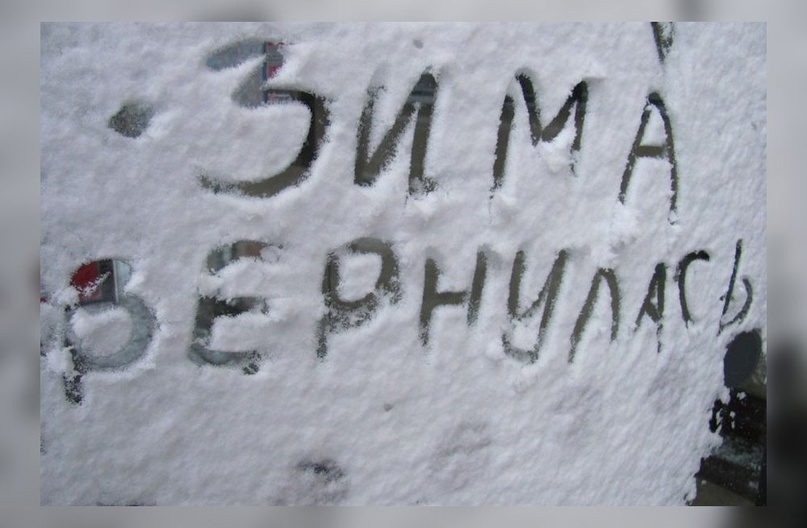 ЗИМА
ВЕРНУЛАСЬ